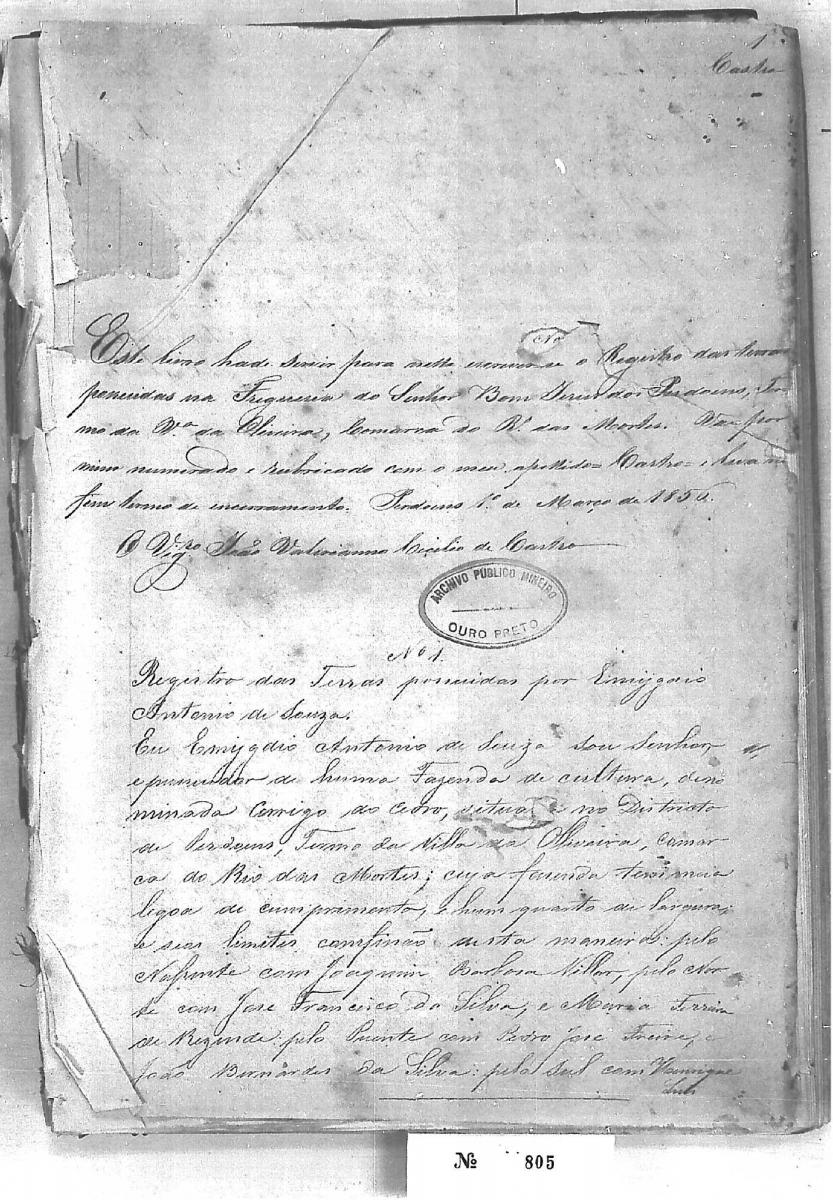 1
Castro
Nº
Este livro hade servir para nelle escrever-se o Registro das terras
possuidas na Freguesia do Senhor Bom Jesus dos Perdoens, Ter-
mo da Vª da Oliveira, Comarca do Rº das Mortes. Vae por
mim numerado e rubricado com o meu apellido = Castro = e leva no
fim termo de encerramento. Perdoens 1º de Março de 1856.
O Vigrº João Valerianno Cicilio de Castro
ARCHIVO PÚBLICO MINEIRO
OURO PRETO
Nº 1.
Registro das Terras possuidas por Emijgdio
Antonio de Souza.
Eu Emijgdio Antonio de Souza sou Senhor
e possuidor de huma Fazenda de cultura, deno
minada Corrigo do Cedro, situada no Districto
de Perdoens, Termo da Villa da Oliveira, Comar-
ca do Rio das Mortes; cuja fazenda tem meia
legoa de cumprimento, e hum quarto de largura;
e seus limites confinão desta maneira: pelo
Nascente com Joaquim Barbosa Villar, pelo Nor-
te com Jose Francisco da Silva, e Maria Ferreira
de Rezende: pelo Puente com Pedro Jose Freire, e
João Bernardes da Silva: pelo Sul com Henrique
Luis
Nº 805